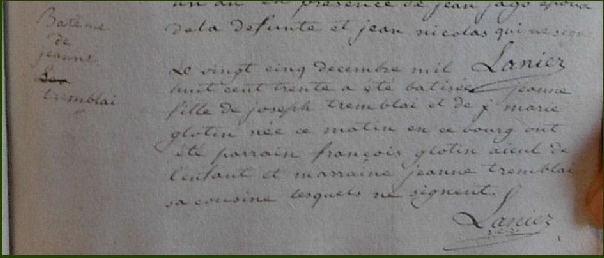 un an en presence de jean jago epoux
de la defunte et jean nicolas qui ne sign
Laniez
Batême
de
jeanne
tremblai
Le vingt cinq decembre mil
huit cent trente a été batisée jeanne
fille de joseph tremblai et de marie
glotin née ce matin en ce bourg ont
été parrain françois glotin aieul de
l'enfant et marraine jeanne tremblai
sa cousine lesquels ne signent.
Laniez